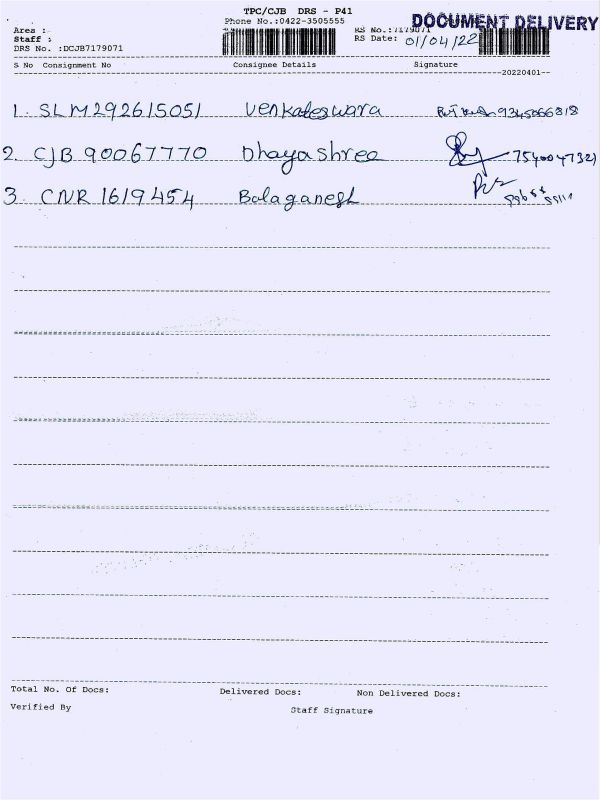 TPC/CJB DRS - P41
Phone No.:0422-3505555
DOCUMENT DELIVERY
Area :
Staff :
DRS No. :DCJB7179071
RS No.:7179071
RS Date: 01/04/22
S No Consignment No Consignee Details Signature
20220401--
1. SLM292615051 Venkateswara 9345066818
2. CJB 90067770 Dhayashree
3. CNR 1619454 Balaganesh
Total No. Of Docs: Delivered Docs: Non Delivered Docs:
Verified By Staff Signature